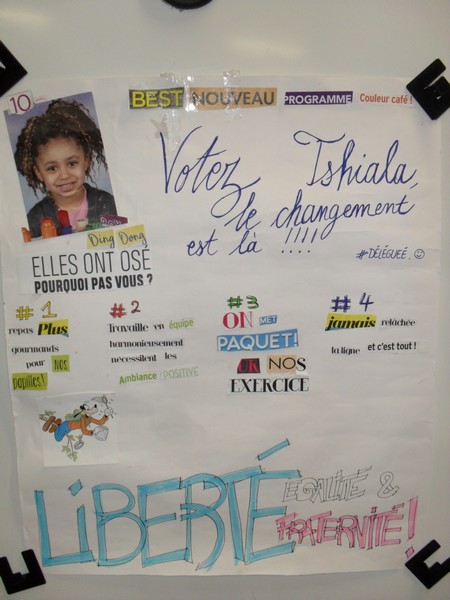 10
BEST NOUVEAU PROGRAMME Couleur café !
Votez Tshiala,
le changement
est là !!!!
#DÉLÉGUÉE
Ding Dong
ELLES ONT OSÉ
POURQUOI PAS VOUS ?
#1
repas Plus
gourmands
pour NOS
papilles!
#2
Travaille en équipe
harmonieusement
nécessitent les
Ambiance /POSITIVE
#3
ON MET
PAQUET!
UR NOS
EXERCICE
#4
jamais relâchée
la ligne et c'est tout !
LIBERTÉ
EGALITÉ &
FRATERNITÉ!